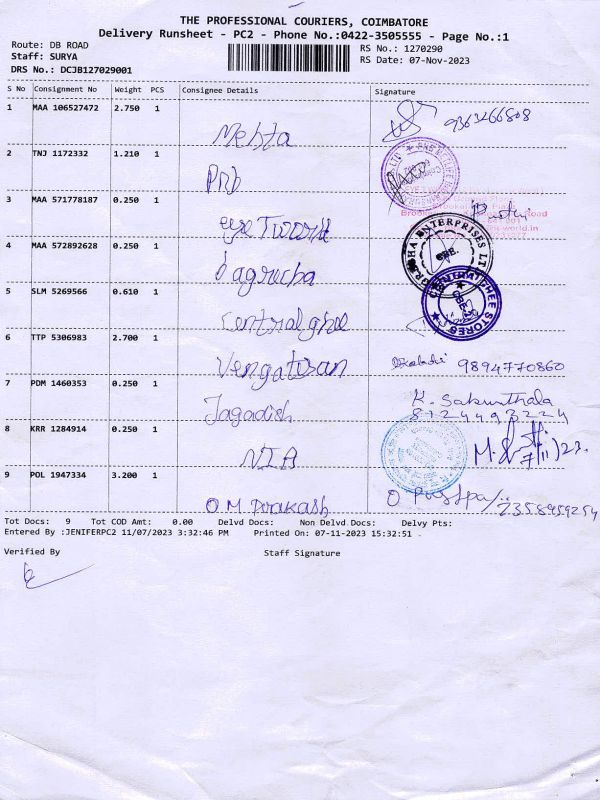 THE PROFESSIONAL COURIERS, COIMBATORE
Delivery Runsheet - PC2 - Phone No.:0422-3505555 - Page No.:1
Route: DB ROAD RS No.: 1270290
Staff: SURYA RS Date: 07-Nov-2023
DRS No.: DCJB127029001
S No Consignment No Weight PCS Consignee Details Signature
1 MAA 106527472 2.750 1 9363266808
Mehta
2 TNJ 1172332 1.210 1
PNb
3 MAA 571778187 0.250 1
eye Tworld
4 MAA 572892628 0.250 1
dagrucha
5 SLM 5269566 0.610 1
Central ghee
6 TTP 5306983 2.700 1 9894770860
Vengatisan
7 PDM 1460353 0.250 1 K. Sakunthala
8124493224
Jagadish
8 KRR 1284914 0.250 1 7/11/23.
NIA
9 POL 1947334 3.200 1 O. Pushpa
7358959254
O M Prakash
Tot Docs: 9 Tot COD Amt: 0.00 Delvd Docs: Non Delvd Docs: Delvy Pts:
Entered By :JENIFERPC2 11/07/2023 3:32:46 PM Printed On: 07-11-2023 15:32:51
Verified By Staff Signature